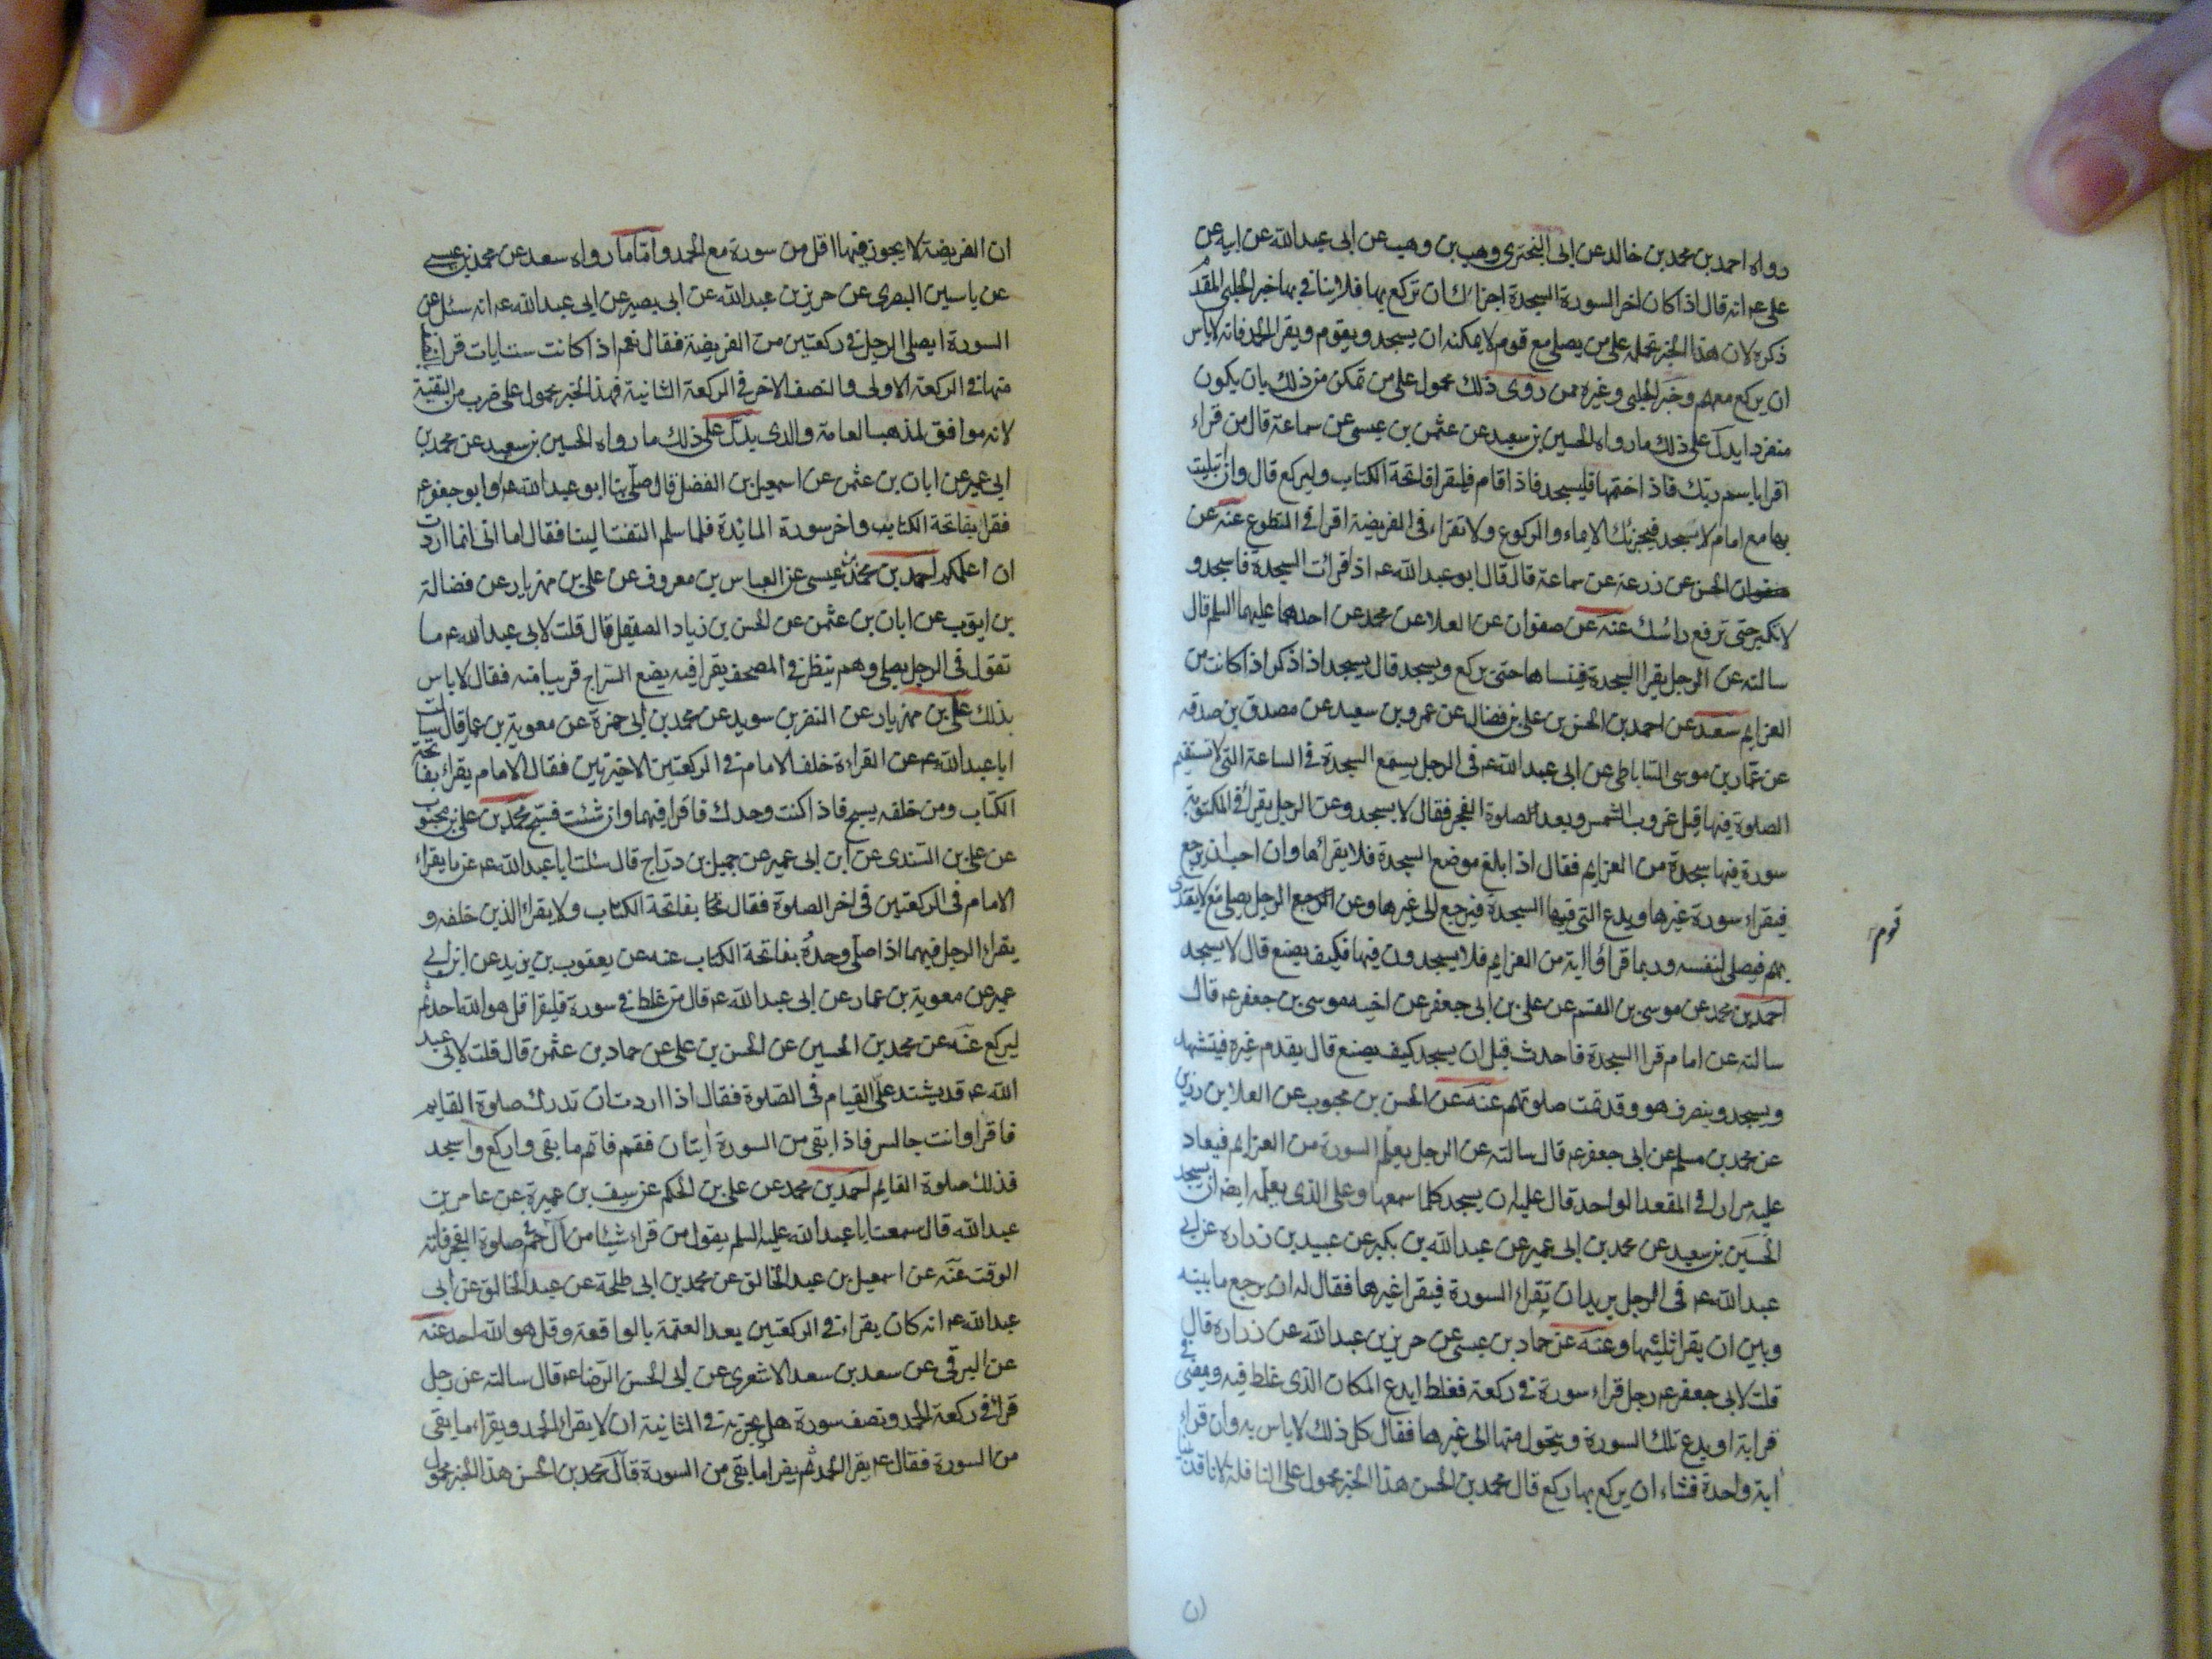 رواه احمد بن محمد بن خالد عن ابى البخترى وهب بن وهب عن ابى عبدالله عن ابيه عن
على عه انه قال اذا كان اخر السورة السجدة اجزاك ان تركع بها فلا ينافى بها خبر الحلبى المقدم
ذكره لان هذا الخبر نحمله على من يصلى مع قوم لا يمكنه ان يسجد ويقوم ويقرا الحمد فانه لاباس
ان يركع معهم وخبر الحلبى وغيره ممن روى ذلك محمول على من تمكن من ذلك بان يكون
منفردا يدل على ذلك ما رواه الحسين بن سعيد عن عثمن بن عيسى عن سماعة قال من قراء
اقرا باسم ربك فاذا ختمها فليسجد فاذا قام فليقرا فاتحة الكتاب وليركع قال وان ابتليت
بها مع امام لا يسجد فيجزئك الايماء والركوع ولا تقراء فى الفريضة اقرا فى التطوع عنه عن
الحسن عن زرعة عن سماعة قال قال ابو عبدالله عه اذا قرات السجدة فاسجد و
لا تكبر حتى ترفع راسك عنه عن صفوان عن العلا عن محمد عن احدهما عليهما السلم قال
سالته عن الرجل يقرا السجدة فينساها حتى يركع ويسجد قال يسجد اذا ذكر اذا كانت من
العزايم سعد عن احمد بن الحسن بن على بن فضال عن عمرو بن سعيد عن مصدق بن صدقه
عن عمار بن موسى الساباطى عن ابى عبدالله عه فى الرجل يسمع السجدة فى الساعة التى لا تستقيم
الصلوة فيها قبل غروب الشمس وبعد صلوة الفجر فقال لا يسجد وعن الرجل يقرا فى المكتوبة
سورة فيها سجدة من العزايم فقال اذا بلغ موضع السجدة فلا يقراها وان احب ان يرجع
فيقراء سورة غيرها ويدع التى فيها السجدة فيرجع الى غيرها وعن الرجل يصلى مع لا يقتدى
قوم
بهم فيصلى لنفسه وربما قراوا اية من العزايم فلا يسجدون فيها فكيف يصنع قال لا يسجد
احمد بن محمد عن موسى بن القسم عن على بن ابى جعفر عن اخيه موسى بن جعفر عه قال
سالته عن امام قرا السجدة فاحدث قبل ان يسجد كيف يصنع قال يقدم غيره فيتشهد
ويسجد وينصرف هو وقد تمت صلوتهم عنه عن الحسن بن محبوب عن العلا بن رزين
عن محمد بن مسلم عن ابى جعفر عه قال سالته عن الرجل يعلم السورة من العزايم فيعاد
عليه مرارا فى المقعد الواحد قال عليه ان يسجد كلما سمعها وعلى الذى يعلمه ايضا ان يسجد
الحسين بن سعيد عن محمد بن ابى عمير عن عبدالله بن بكير عن عبيد بن زراره عن ابى
عبدالله عه فى الرجل يريد ان يقراء السورة فيقرا غيرها فقال له ان يرجع ما بينه
وبين ان يقرا ثلثيها وعنه عن حماد بن عيسى عن حريز بن عبدالله عن زراره قال
قلت لابى جعفر عه رجل قراء سورة فى ركعة فغلط ايدع المكان الذى غلط فيه ويمضى فى
قراءته او يدع تلك السورة ويتحول منها الى غيرها فقال كل ذلك لاباس به وان قراء
اية واحدة فشاء ان يركع بها ركع قال محمد بن الحسن هذا الخبر محمول على النافلة لانا قد بينا
ان الفريضة لا يجوز فيها اقل من سورة مع الحمد واما ما رواه سعد عن محمد بن عيسى
عن ياسين البصرى عن حريز بن عبدالله عن ابى بصير عن ابى عبدالله عه انه سئل عن
السورة ايصلى الرجل فى ركعتين من الفريضة فقال نعم اذا كانت ست ايات قرا
منها فى الركعة الاولى والنصف الاخر فى الركعة الثانية فهذا الخبر محمول على ضرب من التقية
لانه موافق لمذهب العامة والذى يدل على ذلك ما رواه الحسين بن سعيد عن محمد بن
ابى عمير عن ابان بن عثمن عن اسمعيل بن الفضل قال صلى بنا ابو عبدالله عه او ابو جعفر عه
فقرا بفاتحة الكتاب واخر سورة المائدة فلما سلم التفت الينا فقال اما انى انما اردت
ان اعلمكم احمد بن محمد بن عيسى عن العباس بن معروف عن على بن مهزيار عن فضالة
بن ايوب عن ابان بن عثمن عن الحسن بن زياد الصيقل قال قلت لابى عبدالله عه ما
تقول فى الرجل يصلى وهو ينظر فى المصحف يقرا فيه يضع السراج قريبا منه فقال لاباس
بذلك على بن مهزيار عن النضر بن سويد عن محمد بن ابى حمزة عن معوية بن عمار قال سالت
ابا عبدالله عه عن القراءة خلف الامام فى الركعتين الاخيرتين فقال الامام يقراء بفاتحة
الكتاب ومن خلفه يسبح فاذا كنت وحدك فاقرا فيهما وان شئت فسبح محمد بن على بن محبوب
عن على بن السندى عن ابن ابى عمير عن جميل بن دراج قال سالت ابا عبدالله عه عن ما يقراء
الامام فى الركعتين فى اخر الصلوة فقال بفاتحة الكتاب ولا يقراء الذين خلفه و
يقراء الرجل فيهما اذا صلى وحده بفاتحة الكتاب عنه عن يعقوب بن يزيد عن ابن ابى
عمير عن معوية بن عمار عن ابى عبدالله عه قال من غلط فى سورة فليقرا قل هو الله احد ثم
ليركع عنه عن محمد بن الحسين عن الحسن بن على عن حماد بن عثمن قال قلت لابى عبد
الله عه قد يشتد على القيام فى الصلوة فقال اذا اردت ان تدرك صلوة القايم
فاقرا وانت جالس فاذا بقى من السورة ايتان فقم فاتم ما بقى واركع واسجد
فذلك صلوة القايم احمد بن محمد عن على بن الحكم عن سيف بن عميرة عن عامر بن
عبدالله قال سمعت ابا عبدالله عليه السلم يقول من قراء شيئا من آل حم صلوة الفجر فاته
الوقت عنه عن اسمعيل بن عبد الخالق عن محمد بن ابى طلحة عن عبد الخالق عن ابى
عبدالله عه انه كان يقراء فى الركعتين بعد العتمة بالواقعة وقل هو الله احد عنه
عن البرقى عن سعد بن سعد الاشعرى عن ابى الحسن الرضا عه قال سالته عن رجل
قرا فى ركعة الحمد ونصف سورة هل يجزيه فى الثانية ان لا يقراء الحمد ويقراء ما بقى
من السورة فقال عه يقرا الحمد ثم يقرا ما بقى من السورة قال محمد بن الحسن هذا الخبر محمول